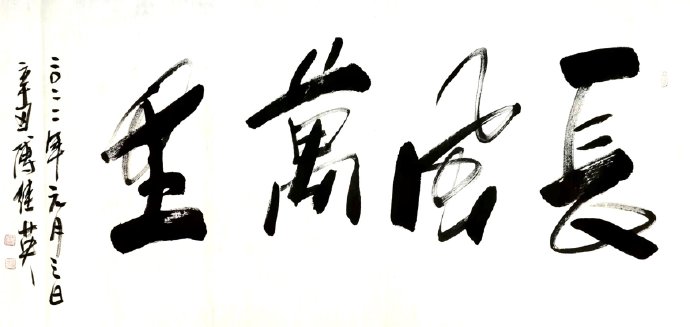 長風萬里
二〇二二年元月三日
辛丑 傅佳英